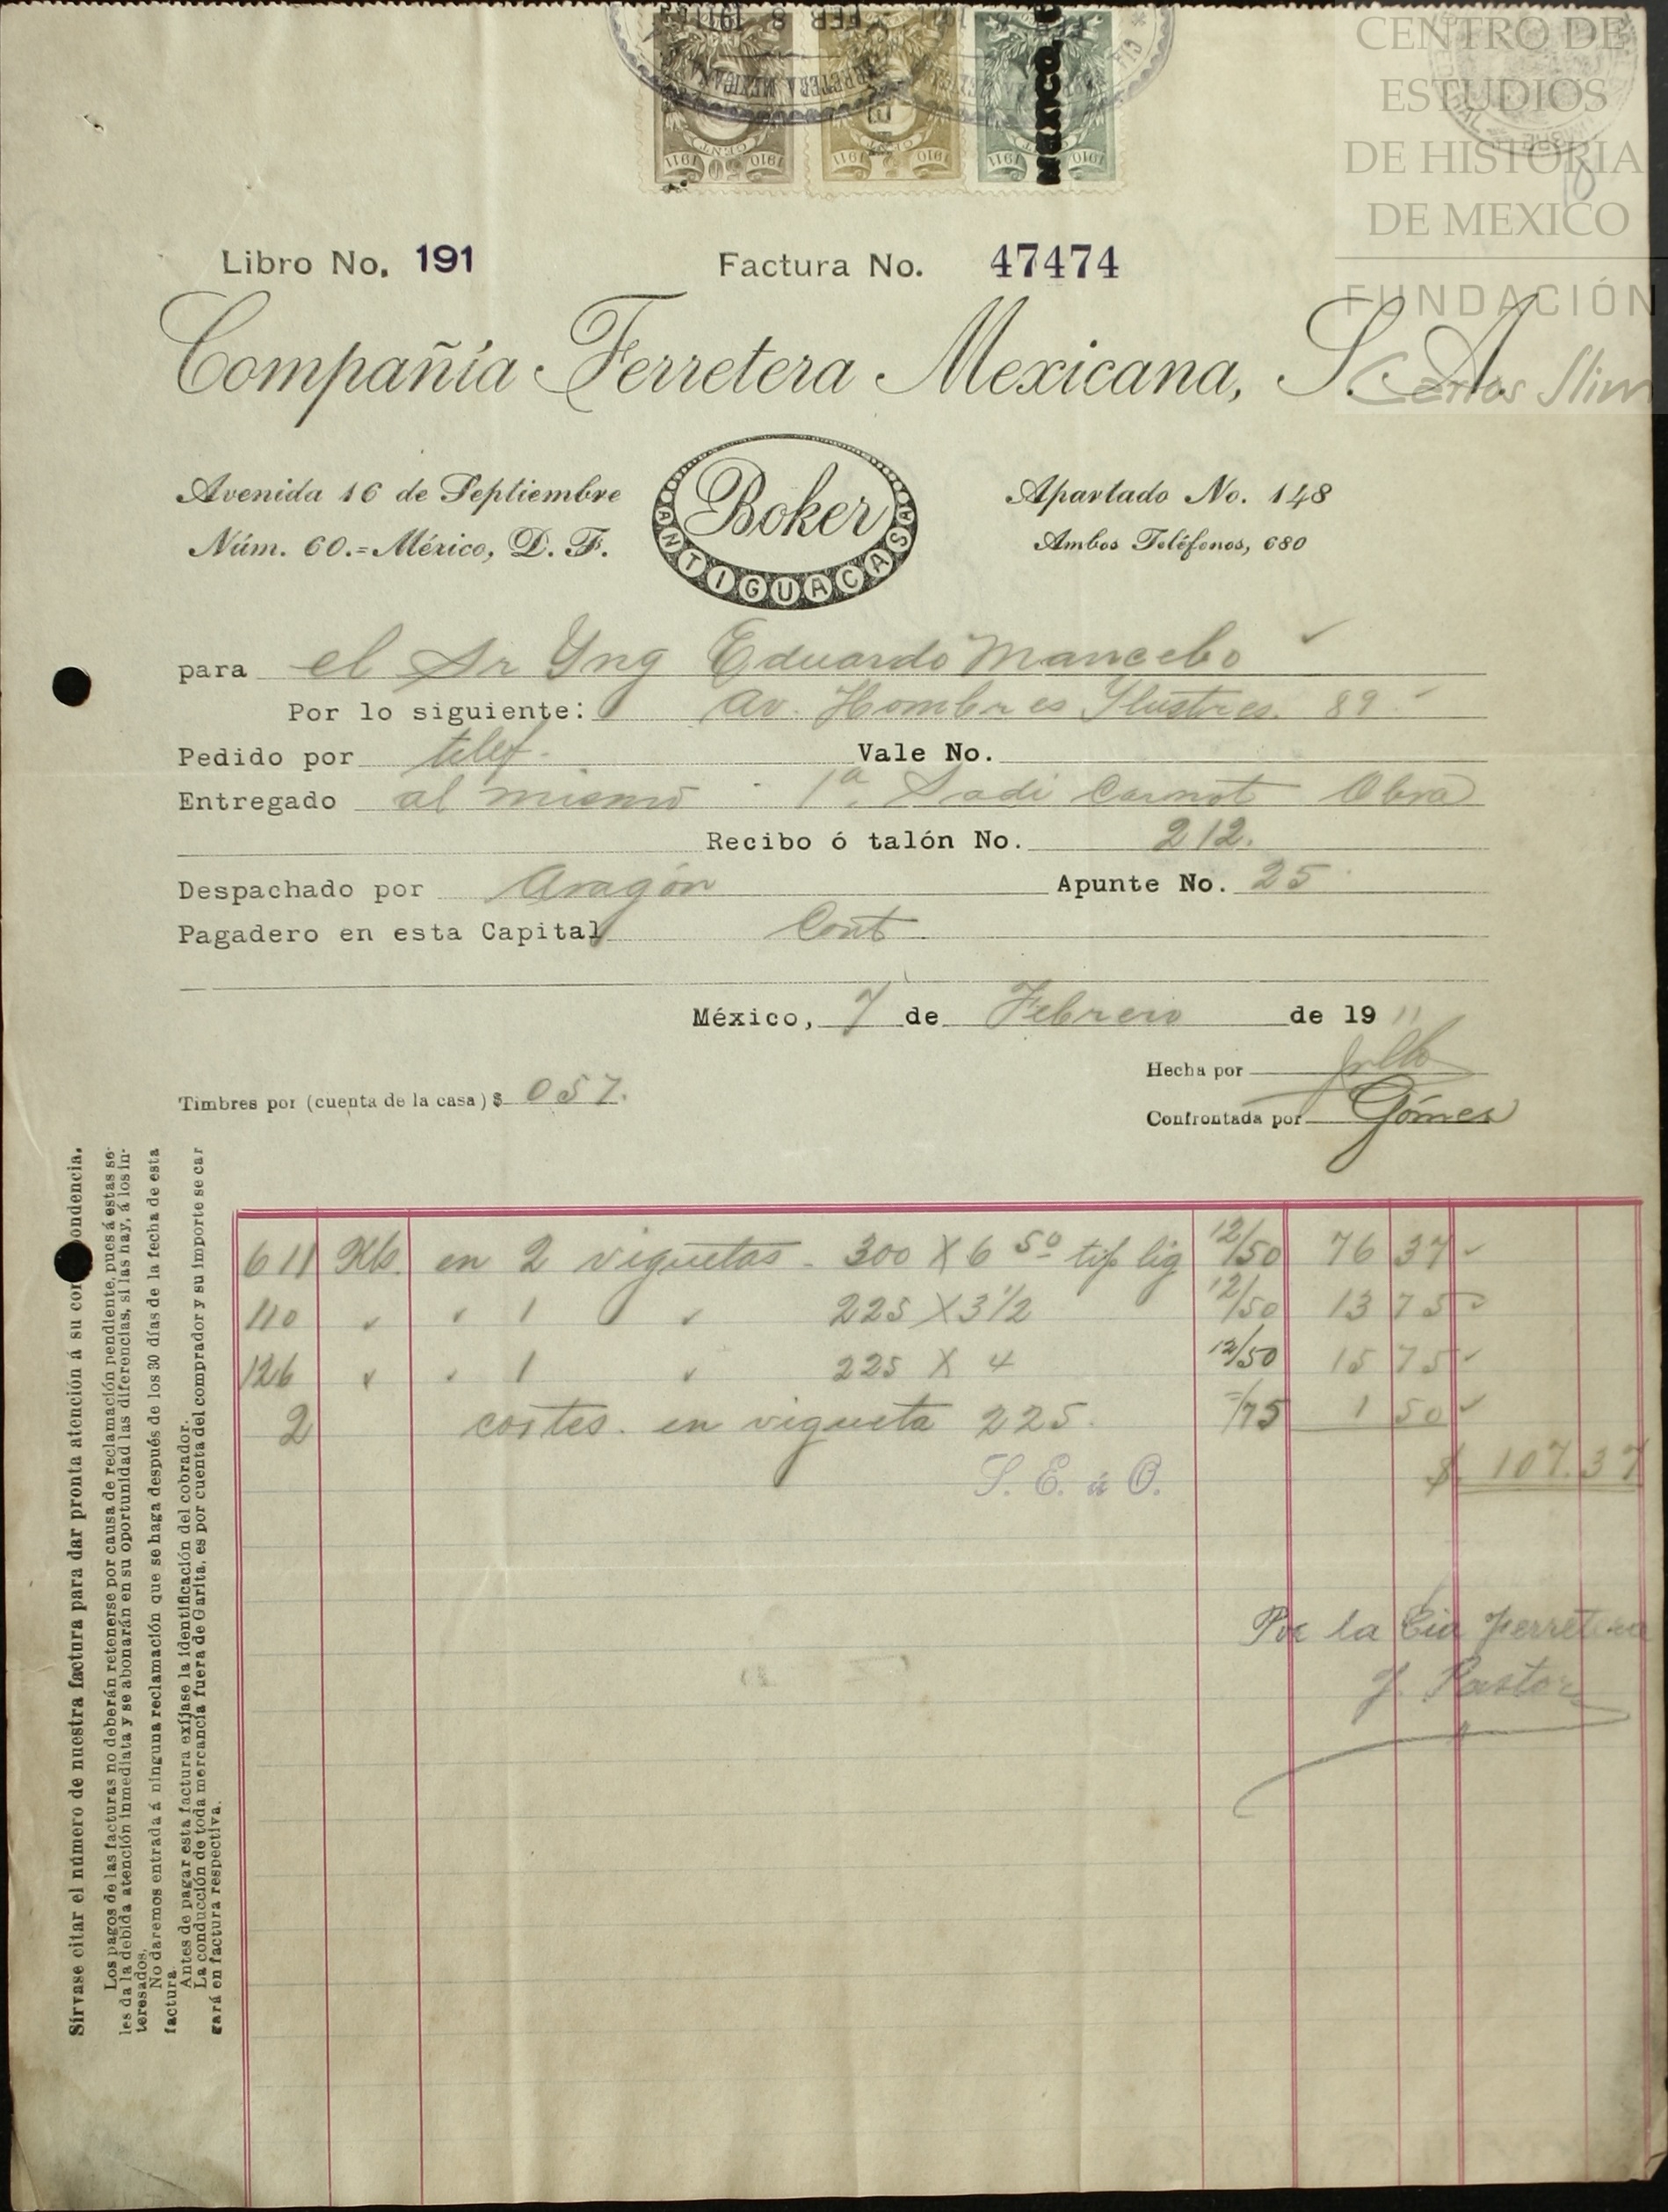 CENTRO DE
ESTUDIOS
DE HISTORIA
DE MEXICO
FUNDACIÓN
Carlos Slim
50 CENT 1910 1911
CENT 1910 1911
CENT 1910 1911
MEXICO
Libro No. 191 Factura No. 47474
Compañía Ferretera Mexicana, S. A.
Avenida 16 de Septiembre
Núm. 60.=México, D. F.
Boker
ANTIGUA CASA
Apartado No. 148
Ambos Teléfonos, 680
para el Sr Yng Eduardo Mancebo
Por lo siguiente: Av. Hombres Ylustres. 89
Pedido por telef. Vale No.
Entregado al mismo 1a. Sadi Carnot Obra
Recibo ó talón No. 212.
Despachado por Aragón Apunte No. 25
Pagadero en esta Capital Cont
México, 7 de Febrero de 1911
Hecha por
Timbres por (cuenta de la casa) $ 057.
Confrontada por Gómez
611 Kls. en 2 viguetas - 300 X 6 50 tip lig 12/50 76 37 ✓
110 " " 1 " 225 X 3 1/2 12/50 13 75
126 " " 1 " 225 X 4 12/50 15 75 ✓
2 cortes. en vigueta 225. =/75 1 50 ✓
$ 107.37
S. E. ú O.
Por la Cia Ferretera
J. Pastor
Sírvase citar el número de nuestra factura para dar pronta atención á su cor ondencia.
Los pagos de las facturas no deberán retenerse por causa de reclamación pendiente, pues á estas se-
les da la debida atención inmediata y se abonarán en su oportunidad las diferencias, si las hay, á los in-
teresados.
No daremos entrada á ninguna reclamación que se haga después de los 30 días de la fecha de esta
factura.
Antes de pagar esta factura exíjase la identificación del cobrador.
La conducción de toda mercancía fuera de Garita, es por cuenta del comprador y su importe se car
gará en factura respectiva.